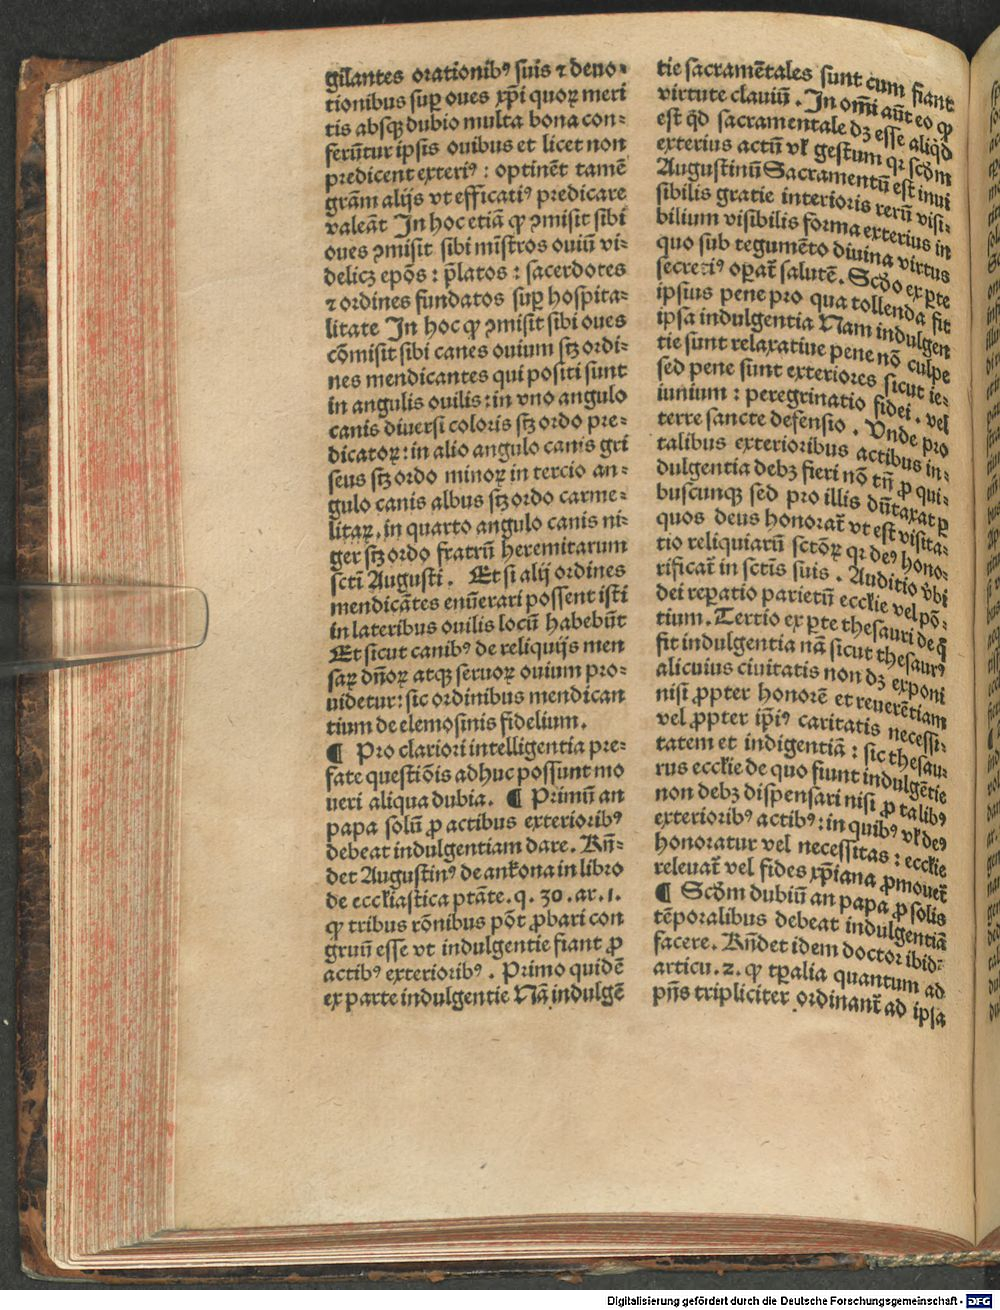 gilantes orationibꝰ suis ⁊ deuo⸗
tionibus suꝑ oues xp̄i quoꝝ meri
tis absqꝫ dubio multa bona con⸗
ferūtur ipsis ouibus et licet non
predicent exteriꝰ : optinēt tamē
grām alijs vt efficatiꝰ predicare
valeāt In hoc etiā ꝙ ꝯmisit sibi
oues ꝯmisit sibi mīstros ouiū vi⸗
delicꝫ ep̄os : p̄latos : sacerdotes
⁊ ordines fundatos suꝑ hospita⸗
litate In hoc ꝙ ꝯmisit sibi oues
cōmisit sibi canes ouium sꝫ ordi⸗
nes mendicantes qui positi sunt
in angulis ouilis : in vno angulo
canis diuersi coloris sꝫ ordo pre⸗
dicatoꝝ : in alio angulo canis gri
seus sꝫ ordo minoꝝ in tercio an⸗
gulo canis albus sꝫ ordo carme⸗
litaꝝ, in quarto angulo canis ni⸗
ger sꝫ ordo fratrū heremitarum
sctī Augusti . Et si alij ordines
mendicātes enūerari possent isti
in lateribus ouilis locū habebūt
Et sicut canibꝰ de reliquijs men
saꝝ dn̄oꝝ atqꝫ seruoꝝ ouium pro⸗
uidetur : sic ordinibus mendican
tium de elemosinis fidelium .
¶ Pro clariori intelligentia pre⸗
fate questiōis adhuc possunt mo
ueri aliqua dubia . ¶ Primū an
papa solū ꝓ actibus exterioribꝰ
debeat indulgentiam dare . Rn̄⸗
det Augustinꝰ de ankona in libro
de eccliastica ptāte . q . 30 . ar . 1 .
ꝙ tribus rōnibus pōt ꝓbari con
gruū esse vt indulgentie fiant ꝓ
actibꝰ exterioribꝰ . Primo quidē
ex parte indulgentie Nā indulgē
tie sacramētales sunt cum fiant
virtute clauiū . In om̄i aūt eo ꝙ
est q̄d sacramentale dꝫ esse aliq̄d
exterius actū vl̄ gestum qꝛ scd̄m
Augustinū Sacramentū est inui
sibilis gratie interioris rerū visi⸗
bilium visibilis forma exterius in
quo sub tegumēto diuina virtus
secretiꝰ oꝑat̄ salutē . Scd̄o ex ꝑte
ipsius pene pro qua tollenda fit
ipsa indulgentia Nam indulgen
tie sunt relaxatiue pene nō culpe
sed pene sunt exteriores sicut ie⸗
iunium : peregrinatio fidei . vel
terre sancte defensio . Vnde pro
talibus exterioribus actibus in⸗
dulgentia debꝫ fieri nō tn̄ ꝓ qui⸗
buscunqꝫ sed pro illis dūtaxat ꝑ
quos deus honorat̄ vt est visita⸗
tio reliquiarū sctōꝝ qꝛ deꝰ hono⸗
rificat̄ in sctīs suis . Auditio v̄bi
dei reꝑatio parietū eccl̄ie vel pō⸗
tium . Tertio ex ꝑte thesauri de q̄
fit indulgentia nā sicut thesaurꝰ
alicuius ciuitatis non dꝫ exponi
nisi ꝓpter honorē et reuerētiam
vel ꝓpter ip̄iꝰ caritatis necessi⸗
tatem et indigentiā : sic thesau⸗
rus eccl̄ie de quo fiunt indulgētie
non debꝫ dispensari nisi ꝓ talibꝰ
exterioribꝰ actibꝰ : in quibꝰ vl̄ deꝰ
honoratur vel necessitas : eccl̄ie
releuat̄ vel fides xp̄iana ꝓmouet̄
¶ Scd̄m dubiū an papa ꝓ solis
tēporalibus debeat indulgentiā
facere . Rn̄det idem doctor ibid⸗
articu . 2 . ꝙ tꝑalia quantum ad
pn̄s tripliciter ordinant̄ ad ipsa
Digitalisierung gefördert durch die Deutsche Forschungsgemeinschaft - DFG